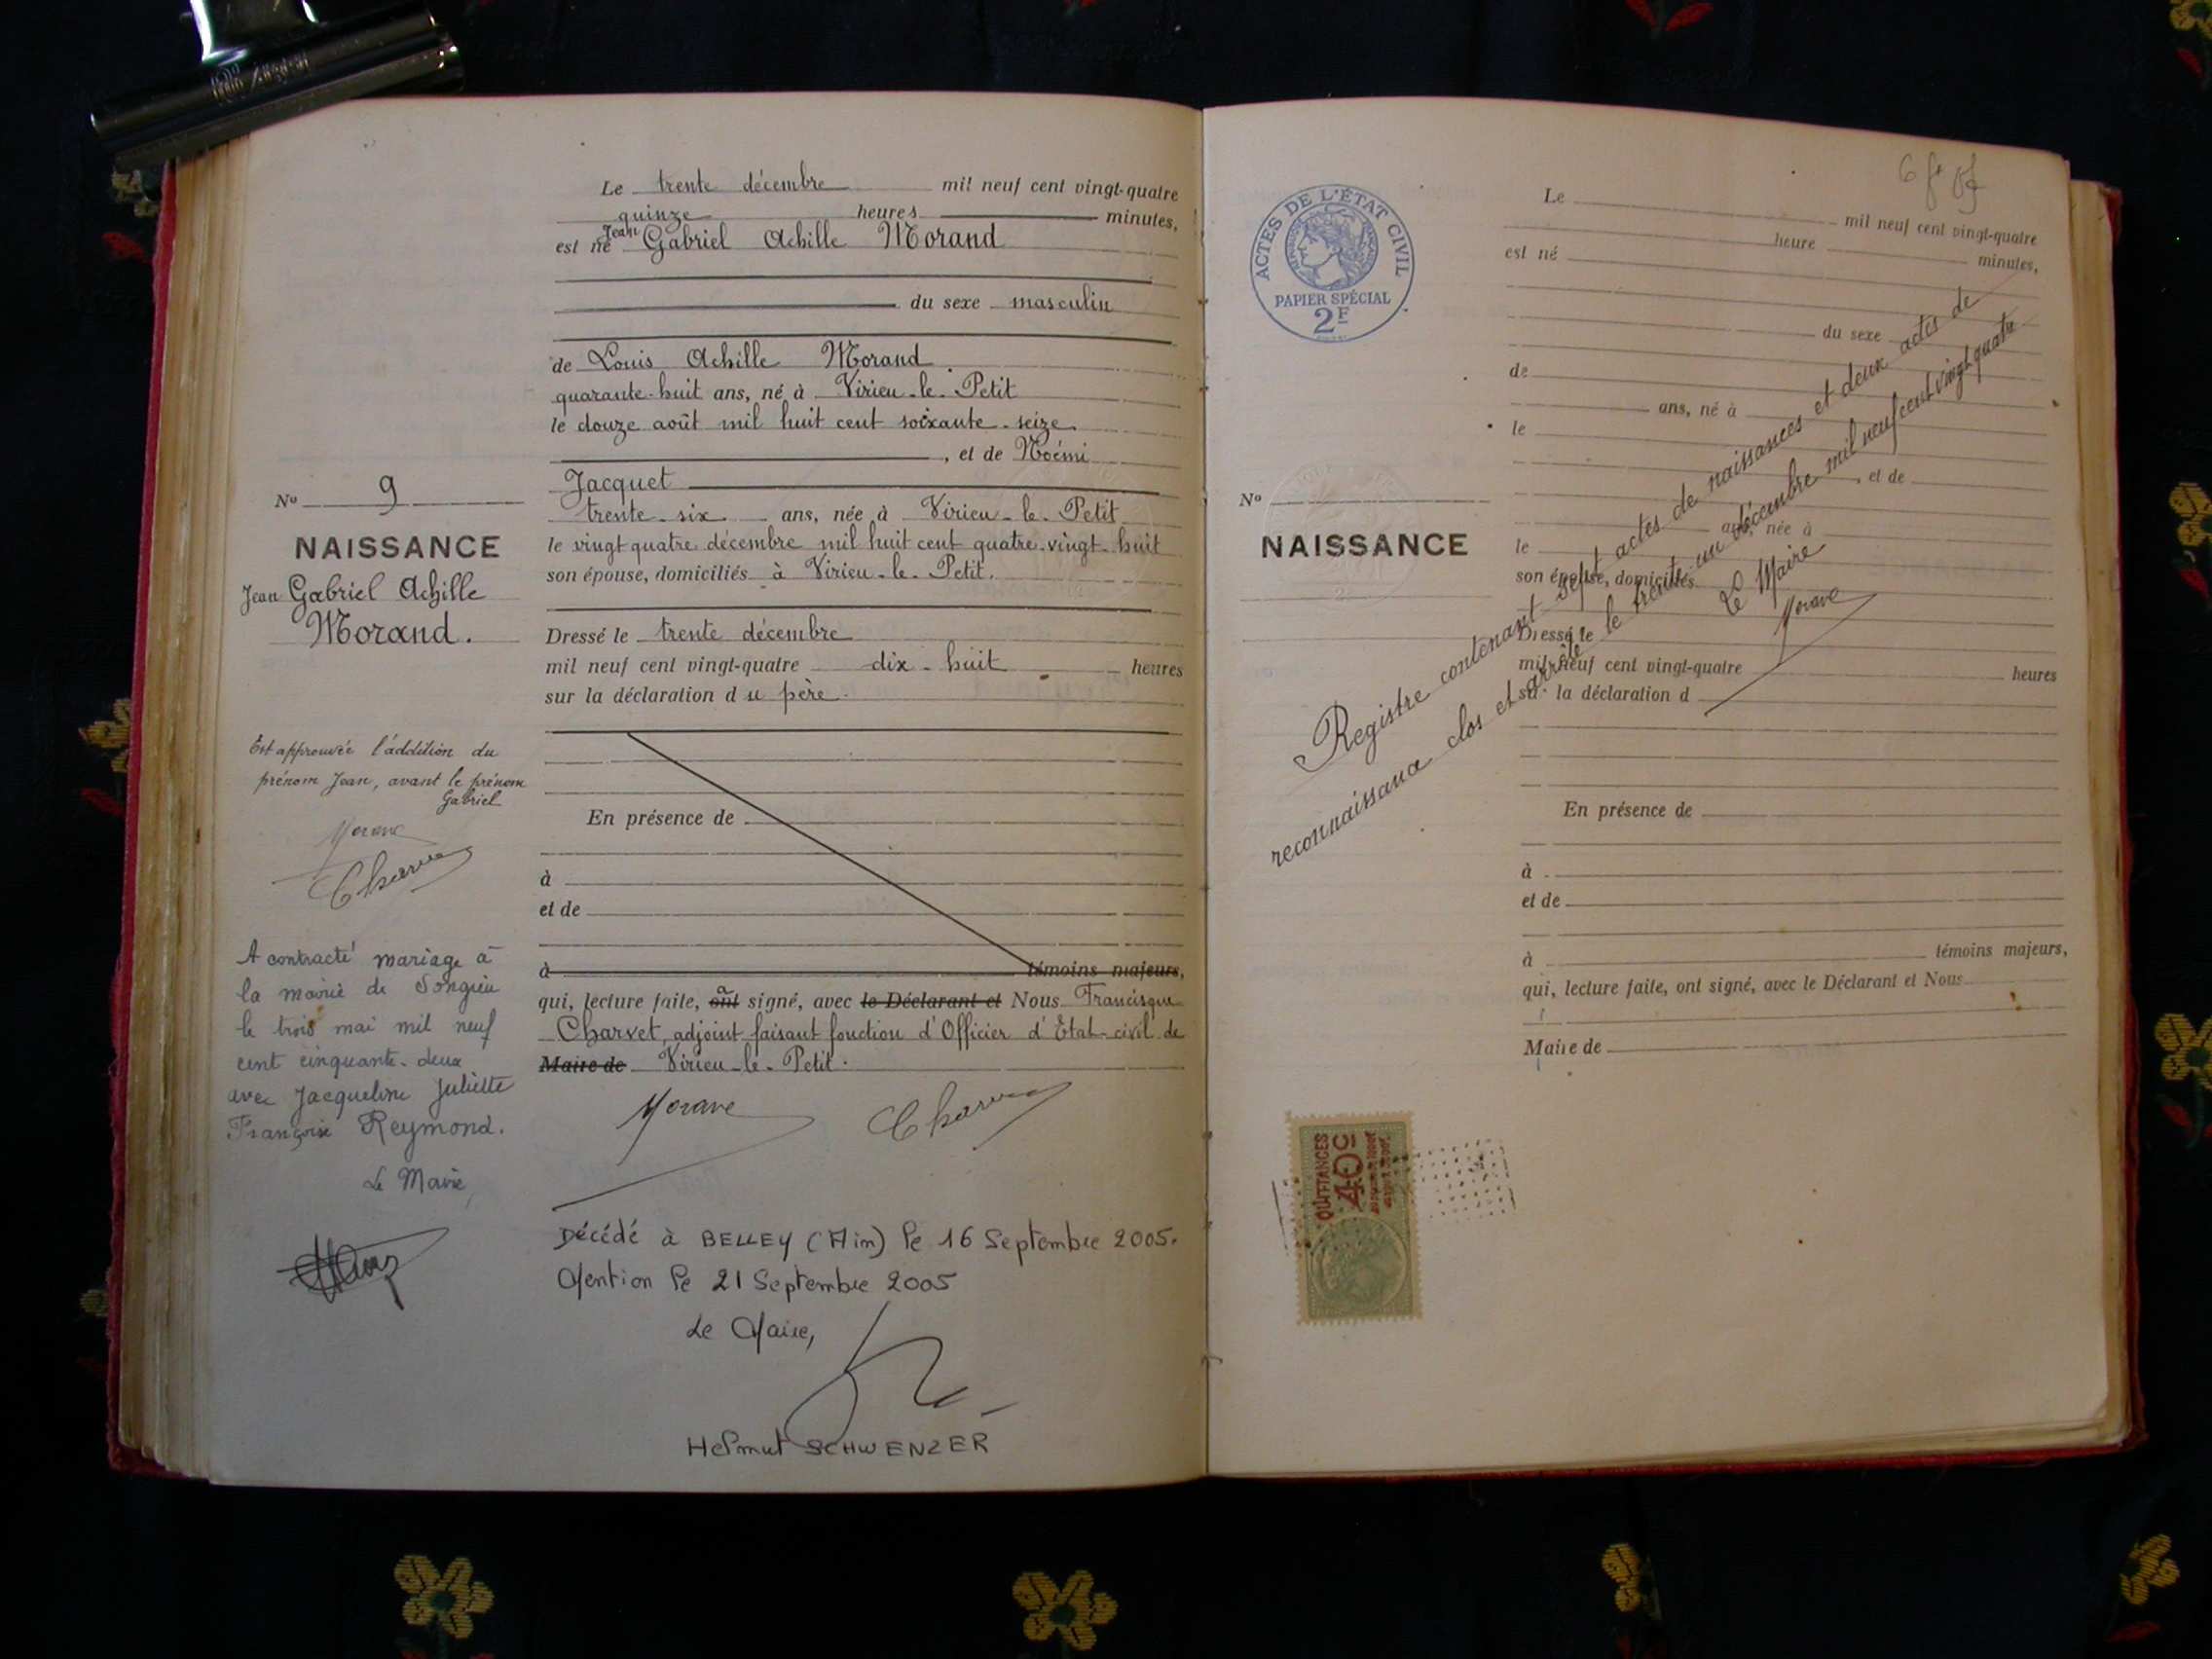 Le trente décembre mil neuf cent vingt-quatre
quinze heures minutes,
Jean
est né Gabriel Achille Morand
du sexe masculin
de Louis Achille Morand
quarante-huit ans, né à Virieu-le-Petit
le douze août mil huit cent soixante-seize
, et de Noémi
Jacquet
trente-six ans, née à Virieu-le-Petit
le vingt quatre décembre mil huit cent quatre-vingt-huit
son épouse, domiciliés à Virieu-le-Petit.
Dressé le trente décembre
mil neuf cent vingt-quatre dix-huit heures
sur la déclaration du père.
En présence de
à
et de
à témoins majeurs,
qui, lecture faite, ont a signé, avec le Déclarant et Nous Francisque
Charvet, adjoint faisant fonction d'Officier d'Etat-civil de
Maire de Virieu-le-Petit.
Décédé à BELLEY (Ain) le 16 Septembre 2005.
Mention le 21 Septembre 2005
Le Maire,
Helmut SCHWENZER
No 9
NAISSANCE
Jean Gabriel Achille
Morand.
Est approuvée l'addition du
prénom Jean, avant le prénom
Gabriel
A contracté mariage à
la mairie de Songieu
le trois mai mil neuf
cent cinquante-deux
avec Jacqueline Juliette
Françoise Reymond.
Le Maire,
ACTES DE L'ÉTAT CIVIL
PAPIER SPÉCIAL
2F
Le mil neuf cent vingt-quatre
heure minutes,
est né
du sexe
de
ans, né à
le
, et de
No
NAISSANCE
ans, née à
le
son épouse, domiciliés
Dressé le
mil neuf cent vingt-quatre heures
sur la déclaration d
En présence de
à
et de
à témoins majeurs,
qui, lecture faite, ont signé, avec le Déclarant et Nous
Maire de
Registre contenant sept actes de naissances et deux actes de
reconnaissance clos et arrêté le trente un décembre mil neuf cent vingt quatre
Le Maire
QUITTANCES
40c